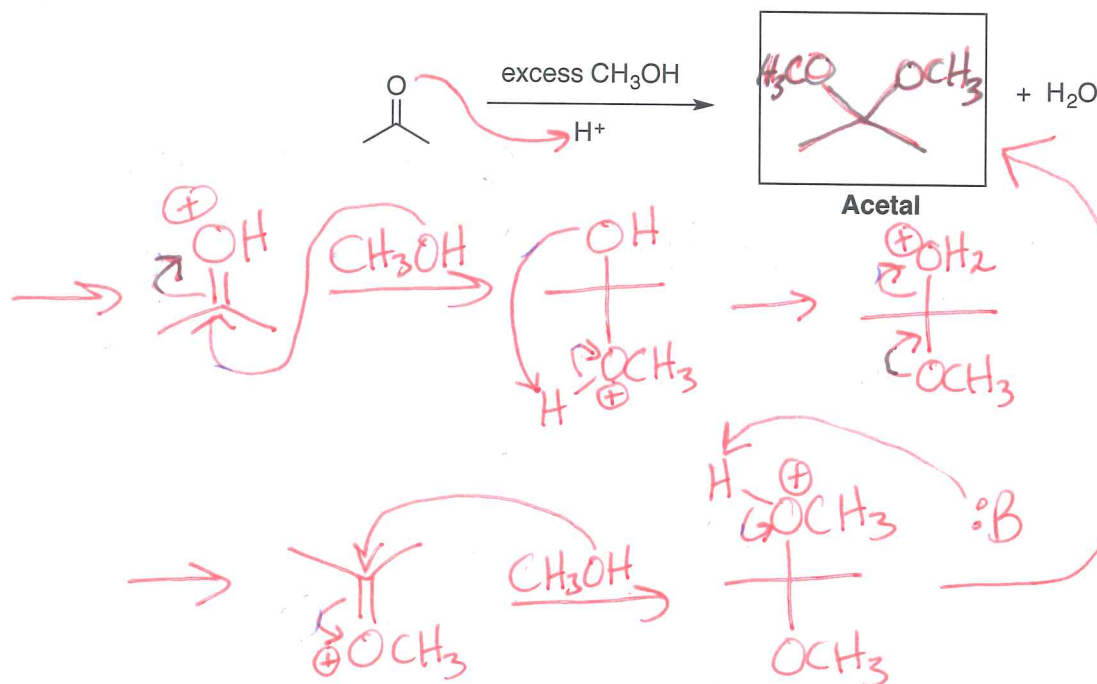 O
excess CH3OH
H+
H3CO OCH3
+ H2O
Acetal
+
OH
CH3OH
OH
H OCH3
+
+
OH2
OCH3
CH3OH
+ OCH3
H
+
OCH3
:B
OCH3